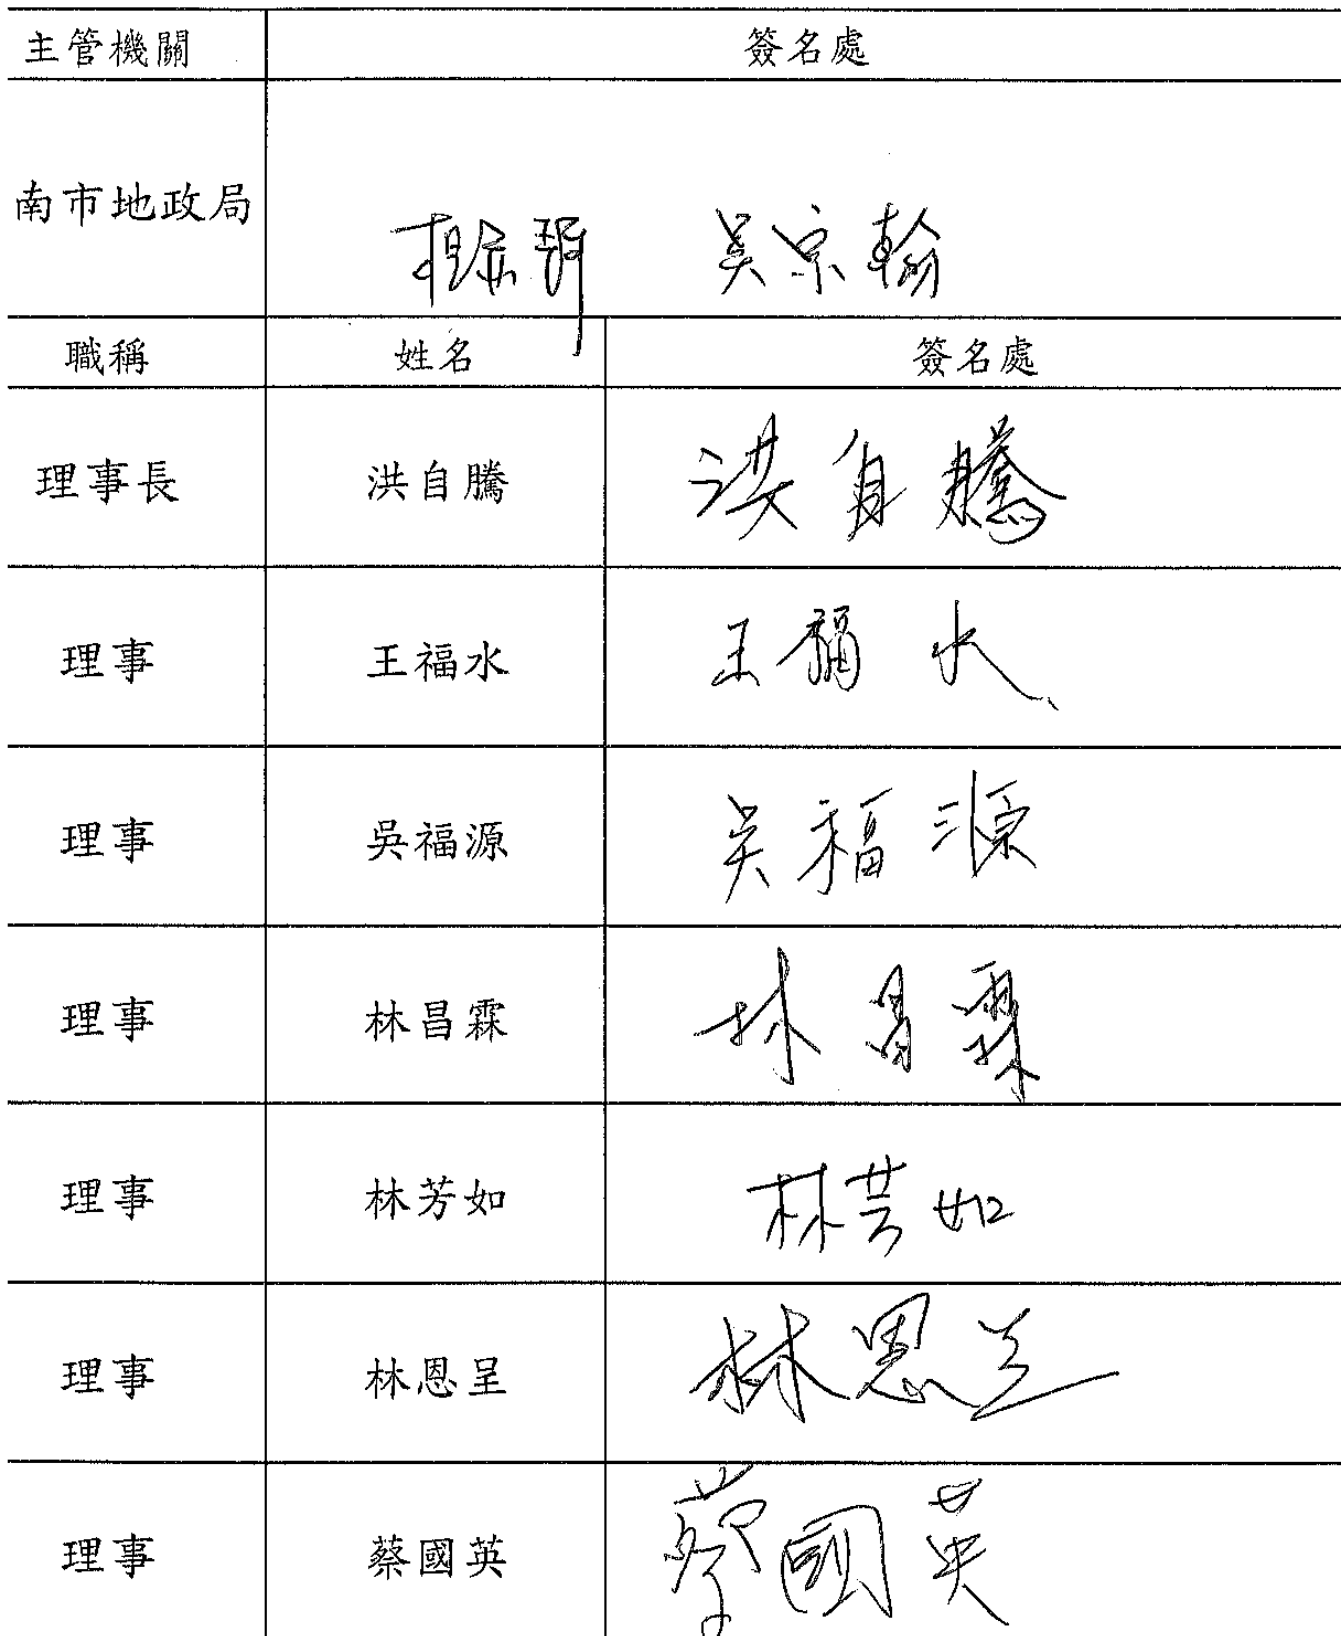 主管機關 簽名處
南市地政局 吳宗翰
職稱 姓名 簽名處
理事長 洪自騰 洪自騰
理事 王福水 王福水
理事 吳福源 吳福源
理事 林昌霖 林昌霖
理事 林芳如 林芳如
理事 林恩呈 林恩呈
理事 蔡國英 蔡國英